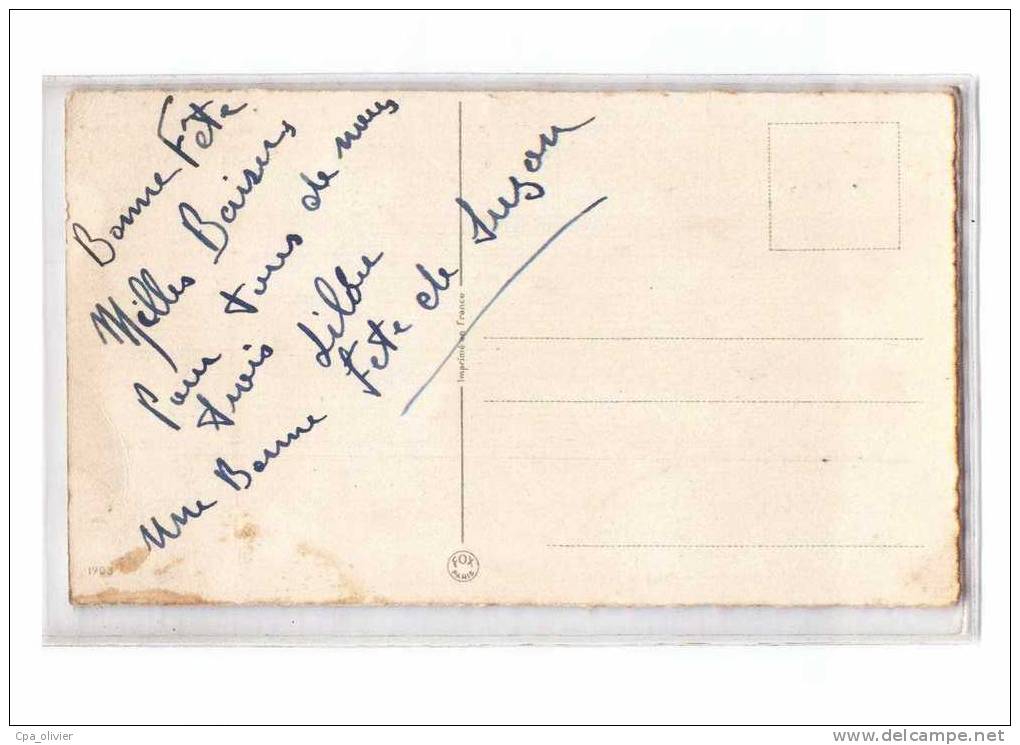 Bonne Fête
Milles Baisers
Pour tous de nous
trois Lilou
Une Bonne Fete de Suzon
Imprimé en France
FOX
PARIS
1903
Cpa_olivier
www.delcampe.net